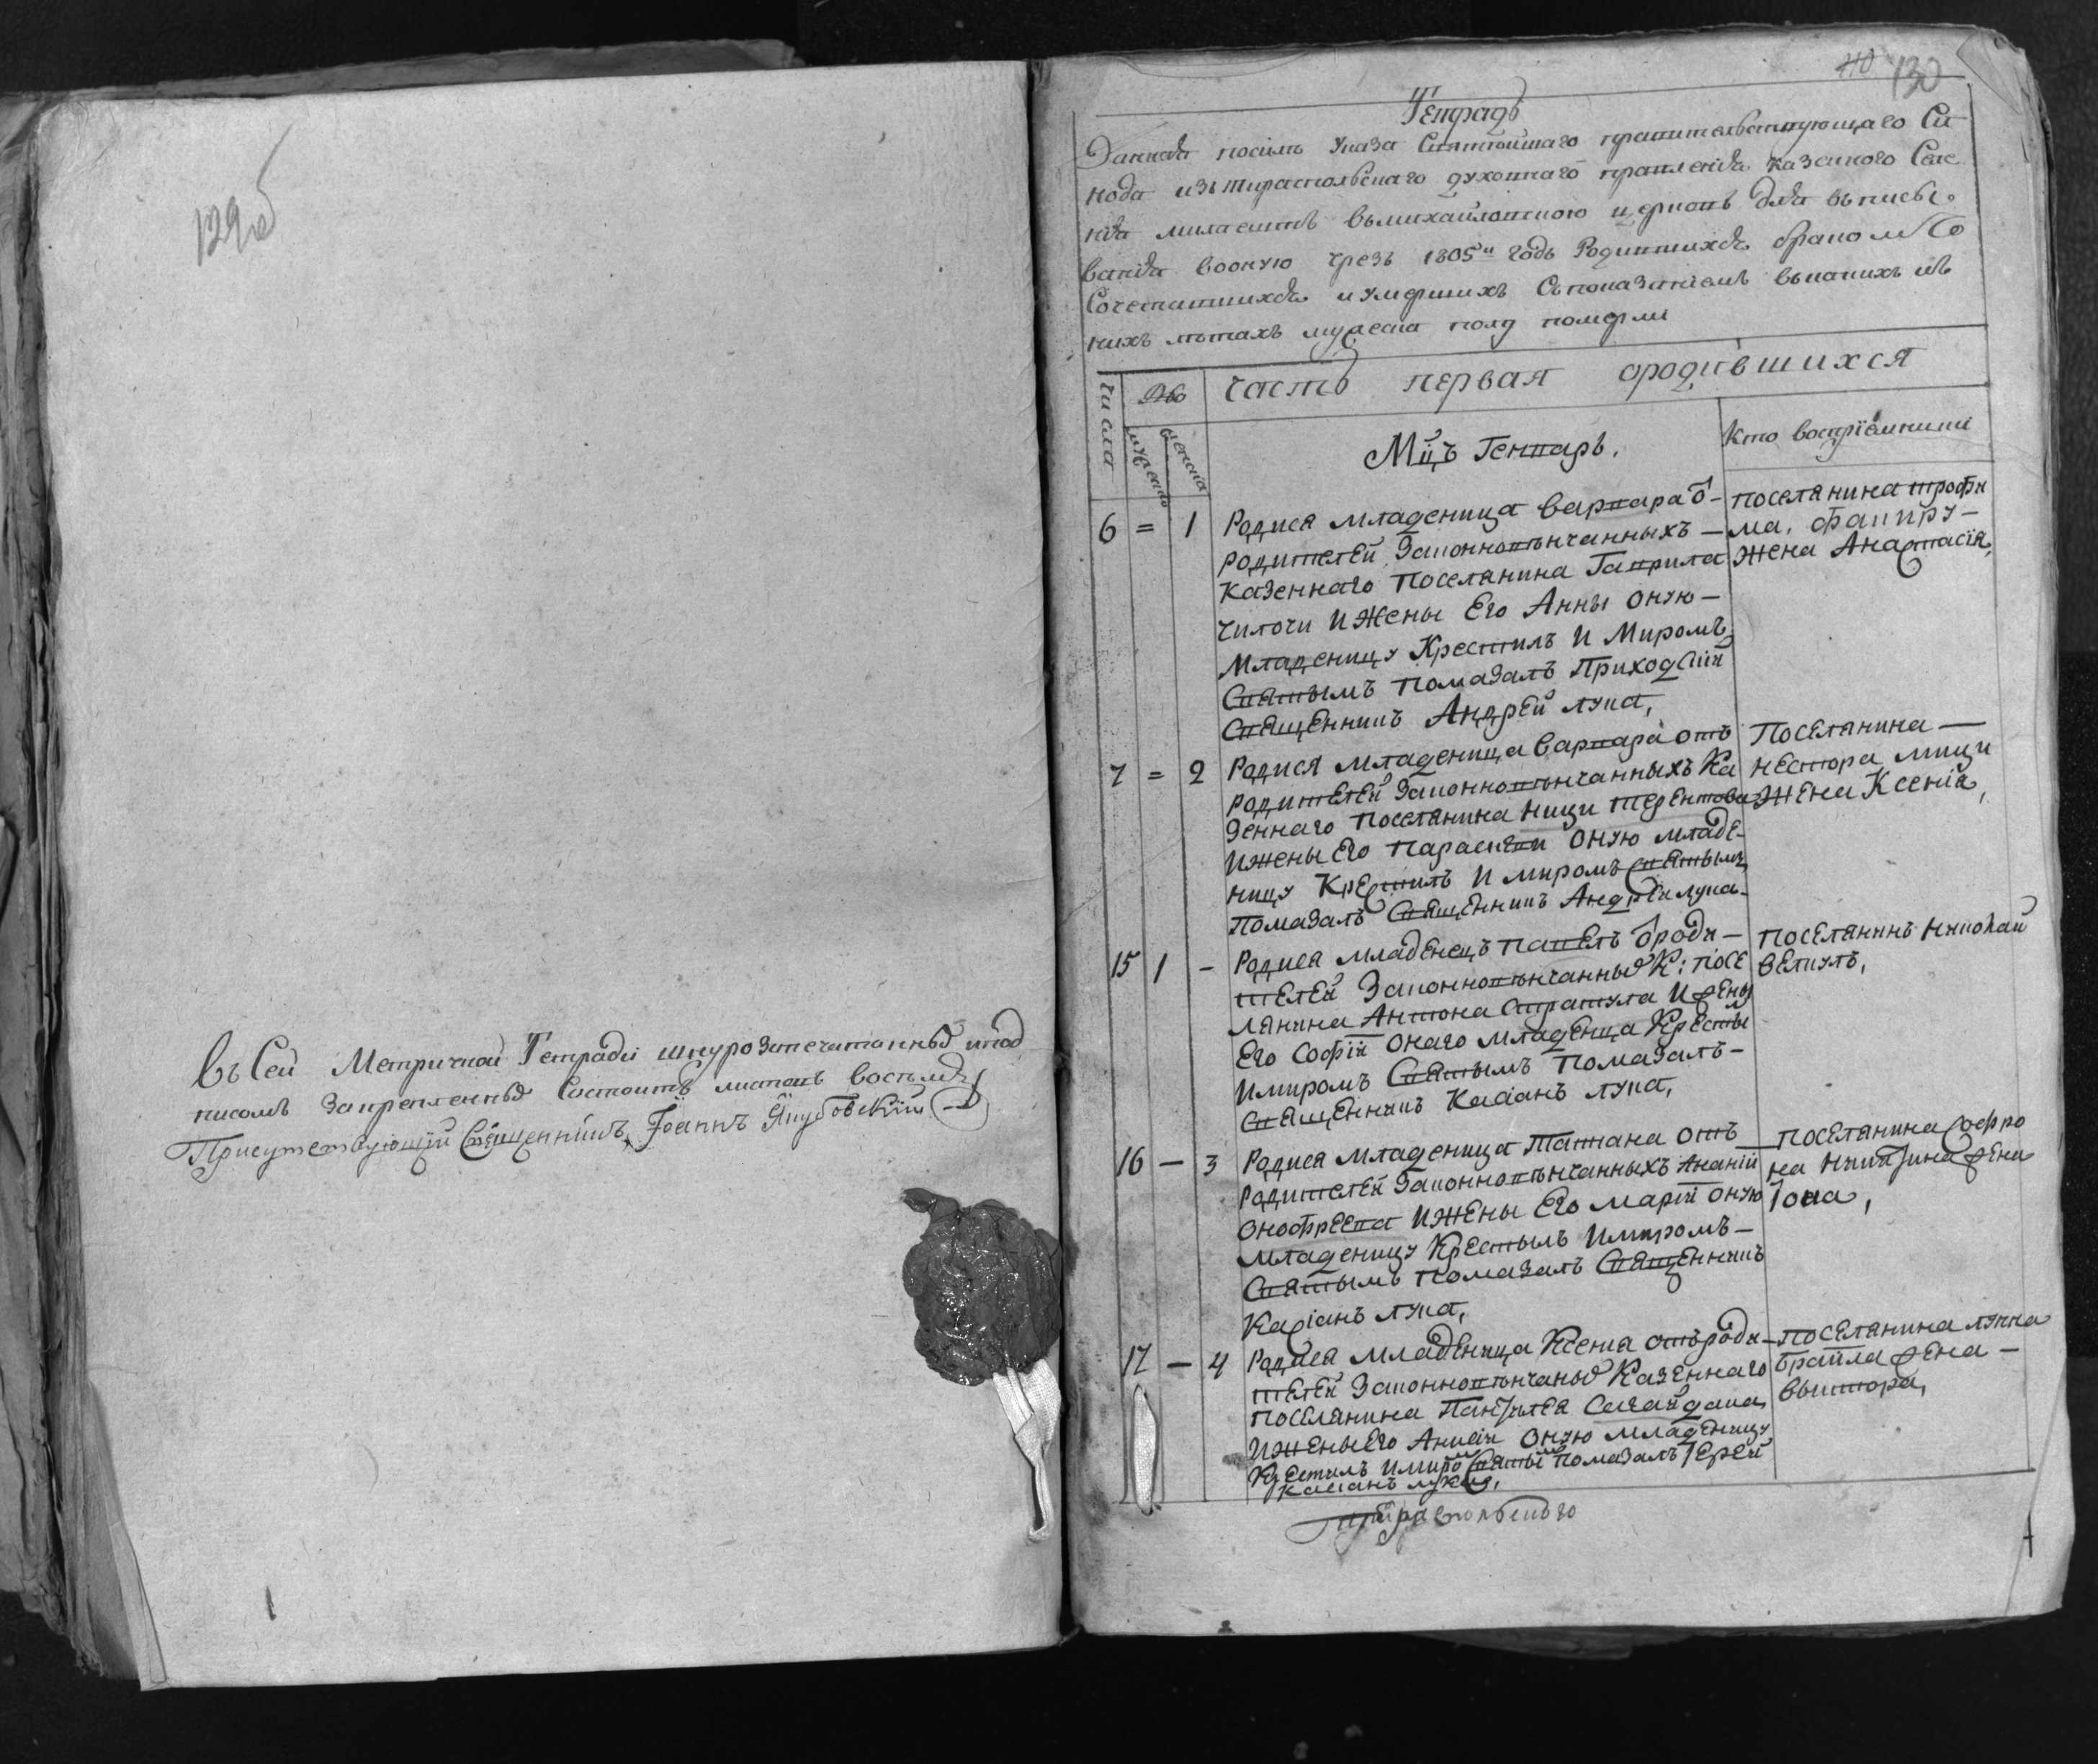 129об
Въ Сей Метричной Тетради шнурозапечатанныхъ и под
писомъ закрепленныхъ Состоитъ листовъ восемдъ
Присутствующій Священникъ Іоаннъ Якубовскій
110 130
Тетрадь
Данная посылъ Указа Святѣйшаго правителствующаго Си
нода изъ тираспольскаго духовнаго правленія казенного Селе
нія въ михайловскую церковь для вписы
ванія вооную чрезъ 1805й годъ Родившихся бракомъ Со
Сочетавшихся и умершихъ Съ показаніемъ въ какихъ их
нихъ лѣтахъ мужеска полу померли
числа
часть первая ородившихся
мужеско
женска
Мцъ Генварь.
Кто воспріемники
6 = 1
Родися младеница варвара ѿ
родителей законновѣнчанныхъ —
казеннаго поселянина Гаврила
чилочи и жены Его Анны оную —
младеницу Крестилъ и Миромъ
Святымъ помазалъ Приходскій
Священникъ Андрей лука,
поселянина трофи
ма,
жена Анастасія,
7 = 2
Родися младеница варвара отъ
родителей законновѣнчанныхъ Ка
зеннаго поселянина ници терентова
и жены Его параскеви оную младе-
ницу Крестилъ и миромъ святымъ
помазалъ Священникъ Андрей лука-
Поселянина —
нестора мици
жена Ксенія,
15 1 -
Родися младенецъ павелъ ѿ роди —
телей Законновѣнчанныхъ К: посе
лянина Антона Стратула и жены
Его Софіи онаго младенца Кресты
и миромъ Святымъ помазалъ —
Священникъ Касіанъ лука,
поселянинъ николай
векулъ,
16 — 3
Родися младеница татиана отъ
родителей законновѣнчанныхъ Ананіи
онофреева и жены Его маріи оную
младеницу Крестылъ и миромъ —
Святымъ помазалъ Священникъ
Касіанъ лука,
поселянина софро
на жена
Іона,
17 — 4
Родися младеница Ксенія отъ роди —
телей законновѣнчаныхъ Казеннаго
поселянина Пантилея Сагайдака,
и жены Его Анисіи оную младеницу
Крестилъ и миромъ Святымъ помазалъ Іерей
Касіанъ лука,
поселянина лупна
браила жена —
виктора,
Тираспольскаго